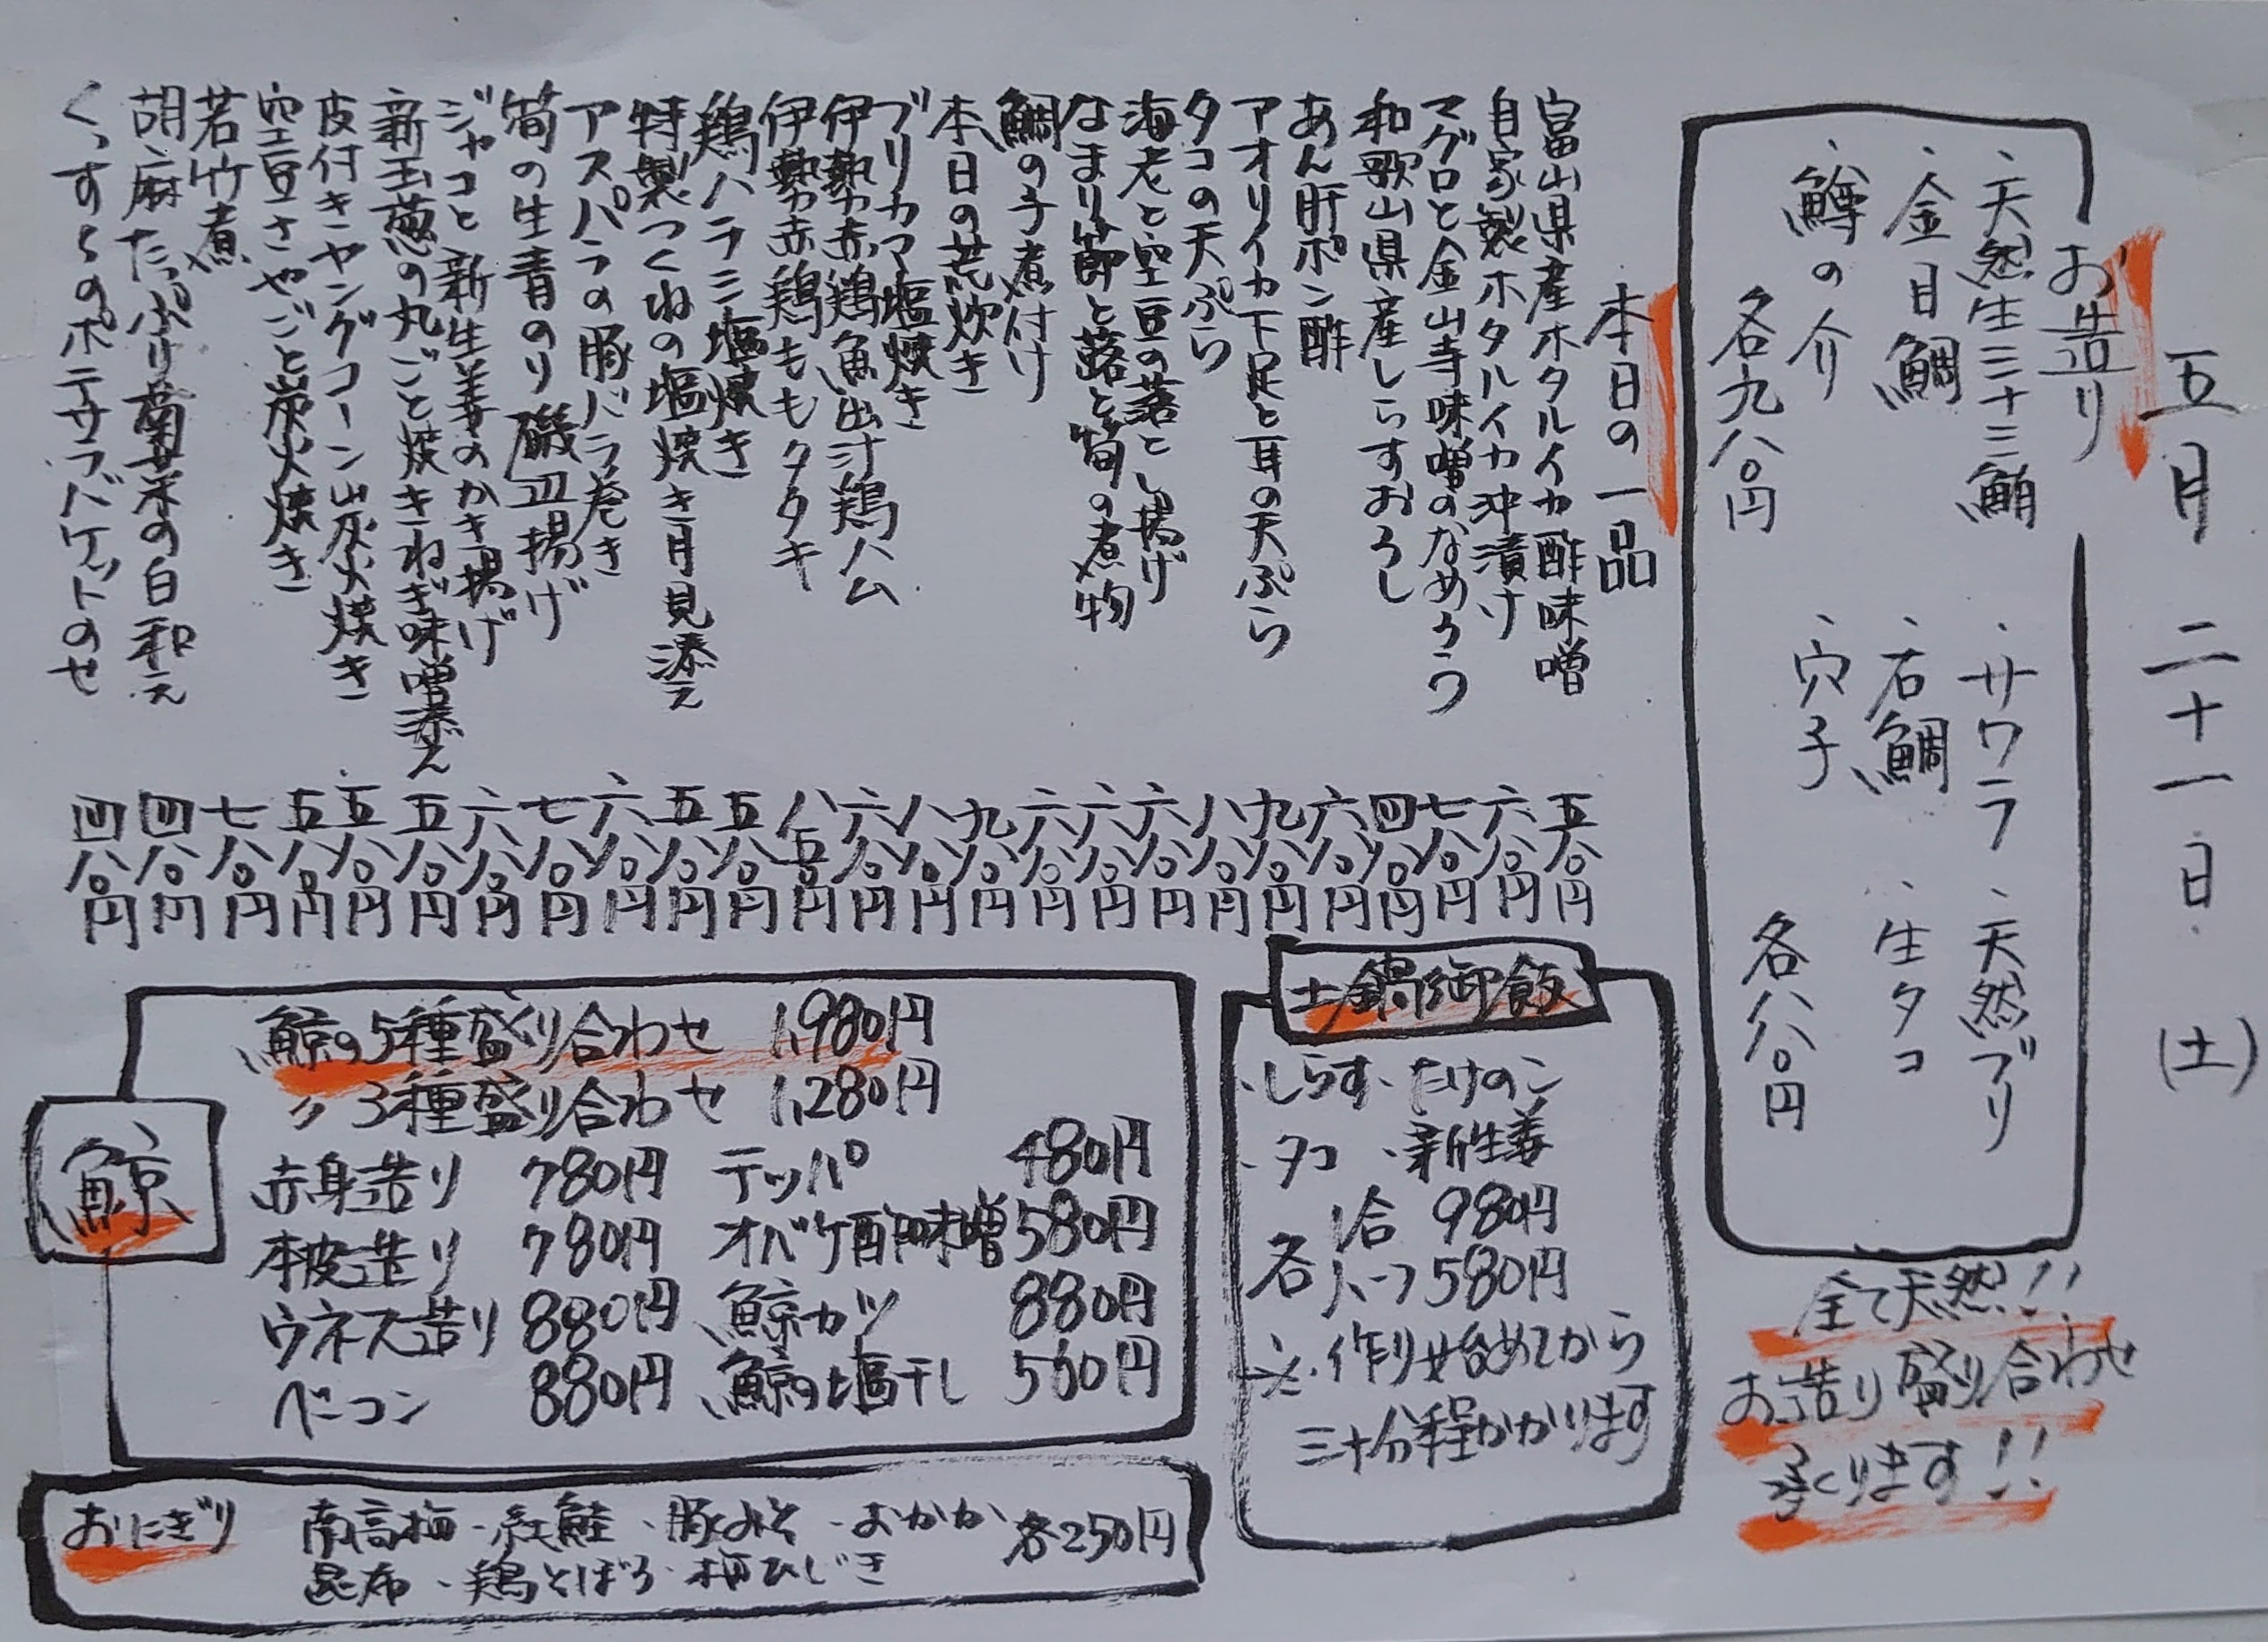 五月二十一日(土)
お造り
・天然生三十三鮪
・サワラ
・天然ブリ
・金目鯛
・石鯛
・生タコ
・鱒の介
・穴子
各九八〇円
各八八〇円
全て天然!!
お造り盛り合わせ
承ります!!
本日の一品
富山県産ホタルイカ酢味噌 五八〇円
自家製ホタルイカ沖漬け 六八〇円
マグロと金山寺味噌のなめろう 七八〇円
和歌山県産しらすおろし 四八〇円
あん肝ポン酢 六八〇円
アオリイカ下足と耳の天ぷら 九八〇円
タコの天ぷら 八八〇円
海老と空豆の落とし揚げ 六八〇円
なまり節と蕗と筍の煮物 六八〇円
鯛の子煮付け 六八〇円
本日の荒炊き 九八〇円
ブリカマ塩焼き 八八〇円
伊勢赤鶏魚出汁鶏ハム 六八〇円
伊勢赤鶏ももタタキ 八五〇円
鶏ハラミ塩焼き 五八〇円
特製つくねの塩焼き月見添え 五八〇円
アスパラの豚バラ巻き 六八〇円
筍の生青のり磯辺揚げ 七八〇円
ジャコと新生姜のかき揚げ 六八〇円
新玉葱の丸ごと焼きねぎ味噌添え 五八〇円
皮付きヤングコーン炭火焼き 五八〇円
空豆さやごと炭火焼き 五八〇円
若竹煮 七八〇円
胡麻たっぷり菊菜の白和え 四八〇円
くっすんのポテサラバケットのせ 四八〇円
土鍋御飯
・しらす・たけのこ
・タコ ・新生姜
各 1合 980円
ハーフ 580円
※作り始めてから
三十分程かかります
鯨
鯨の5種盛り合わせ 1,980円
〃 3種盛り合わせ 1,280円
赤身造り 780円 テッパ 480円
本皮造り 780円 オバケ酢味噌 580円
ウネス造り 880円 鯨カツ 880円
ベーコン 880円 鯨の塩干し 580円
おにぎり 南高梅・紅鮭・豚みそ・おかか 各250円
昆布・鶏そぼろ・梅ひじき